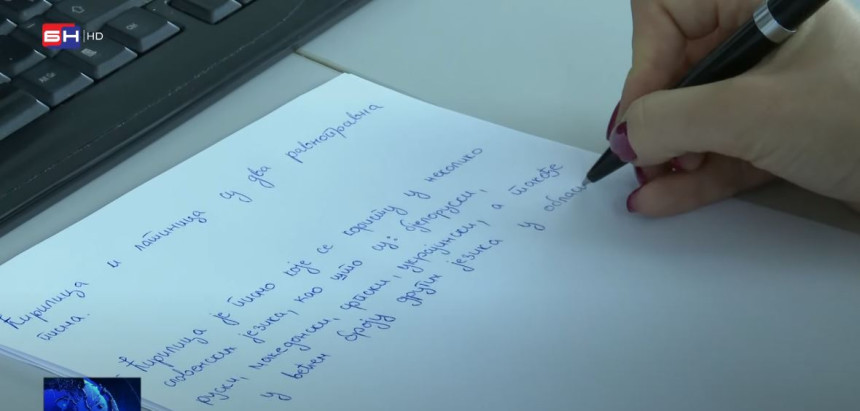 БН HD
Ћирилица и латиница су два равноправна
писма.
- Ћирилица је писмо које се користи у неколико
словенских језика, као што су: бјелоруски,
руски, македонски, српски, украјински, а такође
у већем броју других језика у